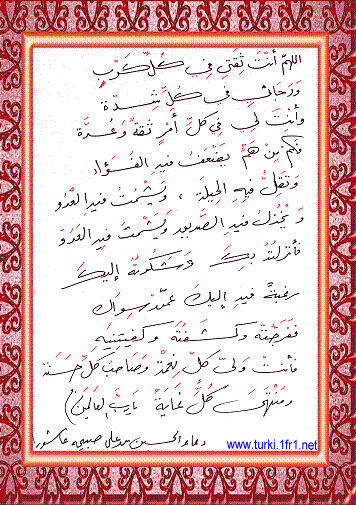 اللهم أنتَ ثِقَتي في كُلِّ كَرْبٍ
ورَجائي في كُلِّ شِدّة
وأنتَ لي في كلِّ أمْرٍ ثقةٌ وعُدَّة
فكم مِنْ هَمٍّ يَضْعَفُ فيهِ الفُؤاد
وتَقِلُّ فيهِ الحيلَة ، ويَشْمَتُ فيهِ العَدُو
ويَخْذلُ فيهِ الصَّديقُ ويَشْمتُ فيهِ العَدُوّ
فأنزلتُهُ بِكَ وشَكَوتُهُ إليكَ
رغبةً فيهِ إليكَ عمّنْ سِواكَ
ففَرَّجْتَهُ وكَشَفْتَهُ وكَفَيتَنِيهِ
فأنتَ وليُّ كلِّ نِعْمَةٍ وصَاحبُ كلِّ حَسَنَة
ومُنْتَهى كُلِّ غايَةٍ يا رَبَّ العالمين)
دعاء الحسين بن علي صبيحة عاشور
www.turki.1fr1.net